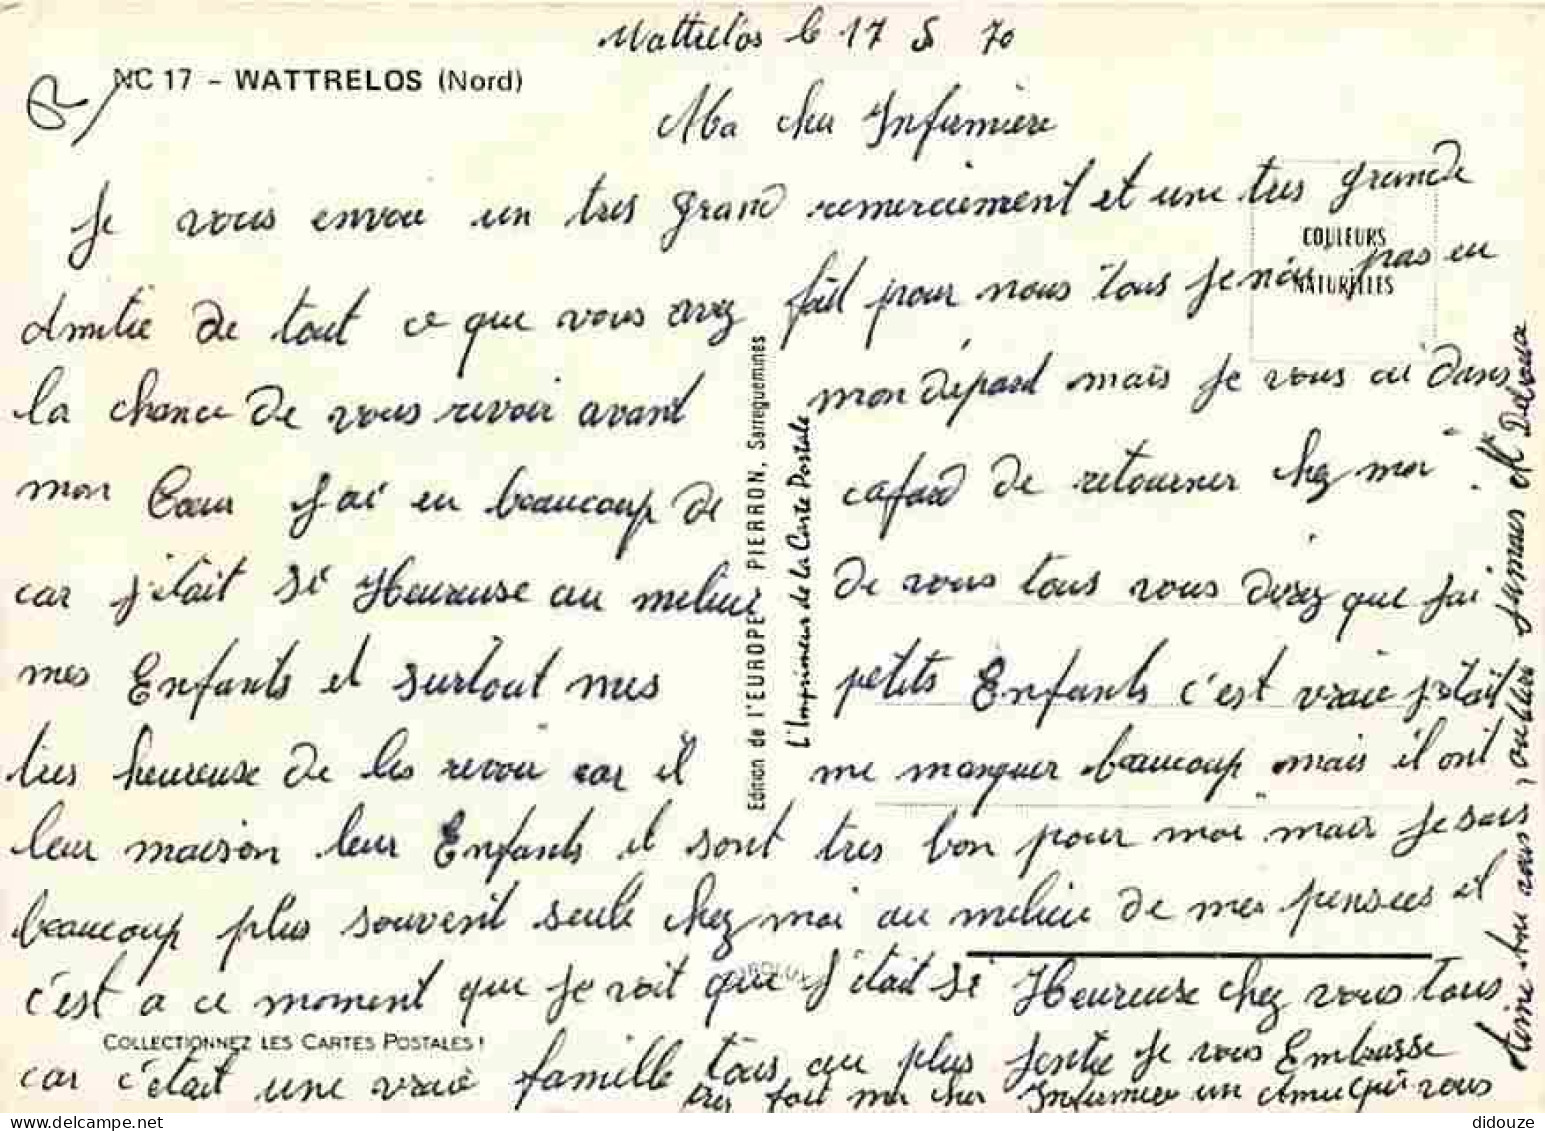 Wattrelos le 17 5 70
NC 17 - WATTRELOS (Nord)
Ma cher Infirmiere
Je vous envoie un tres grand remerciement et une tres grande
COULEURS
NATURELLES
Amitie de tout ce que vous avez fait pour nous tous Je n'ai pas eu
la chance de vous revoir avant mon départ mais Je vous ai dans
mon Coeur J'ai eu beaucoup de cafard de retourner chez moi
car j'etait si Heureuse au melieu de vous tous vous direz que J'ai
mes Enfants et surtout mes petits Enfants c'est vraie j'etait
tres heureuse de les revoir car il me manquer beaucoup mais il ont
leur maison leur Enfants il sont tres bon pour moi mais Je suis
beaucoup plus souvent seule chez moi au melieu de mes pensees et
c'est a ce moment que Je voit que J'etait si Heureuse chez vous tous
COLLECTIONNEZ LES CARTES POSTALES!
car c'etait une vraie famille tous au plus Je vous Embrasse
tres fort ma cher Infirmiere un Amie qui vous
Aime oublira Jamais Me
Edition de l'EUROPE PIERRON, Sarreguemines
L'Imprimeur de la Carte Postale
didouze @ delcampe.net